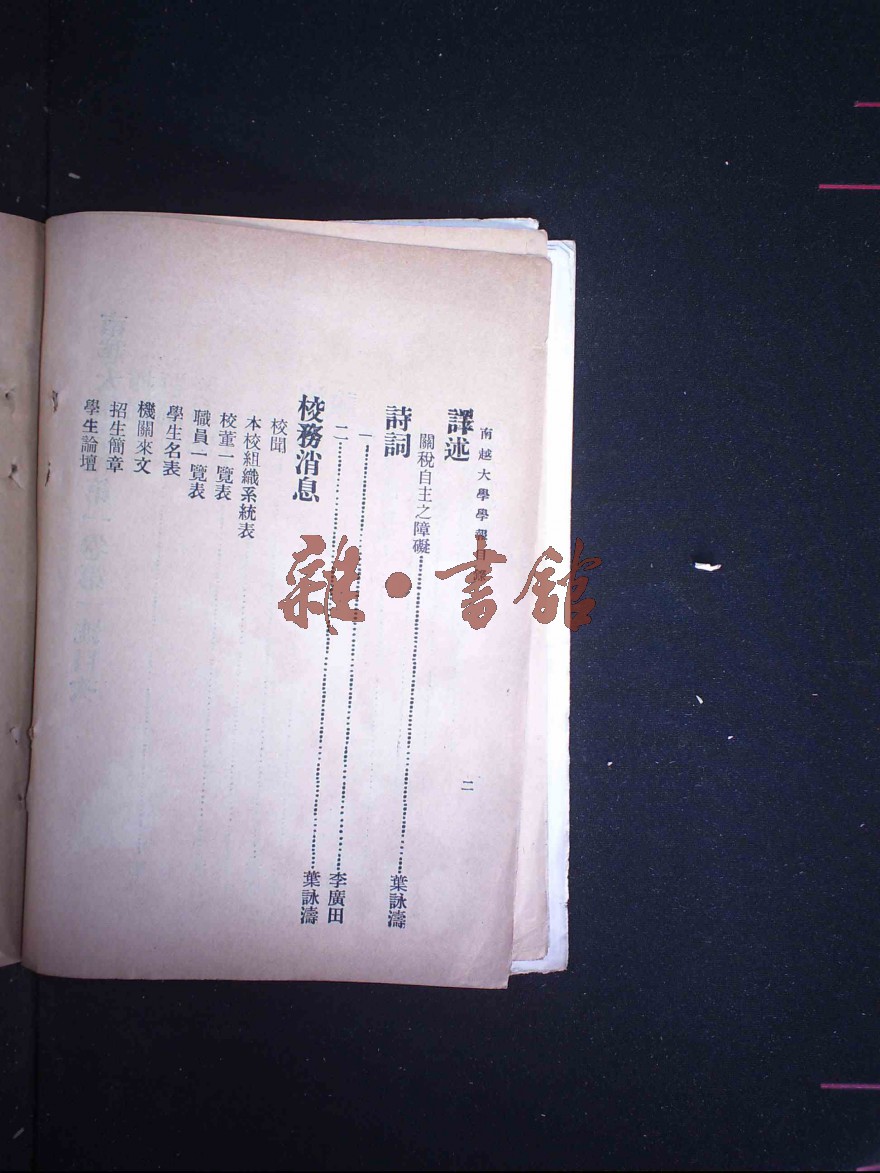 南越大學學報目錄 二
譯述
關稅自主之障礙……葉詠濤
詩詞
一……李廣田
二……葉詠濤
校務消息
校聞
本校組織系統表
校董一覽表
職員一覽表
學生名表
機關來文
招生簡章
學生論壇
雜·書館